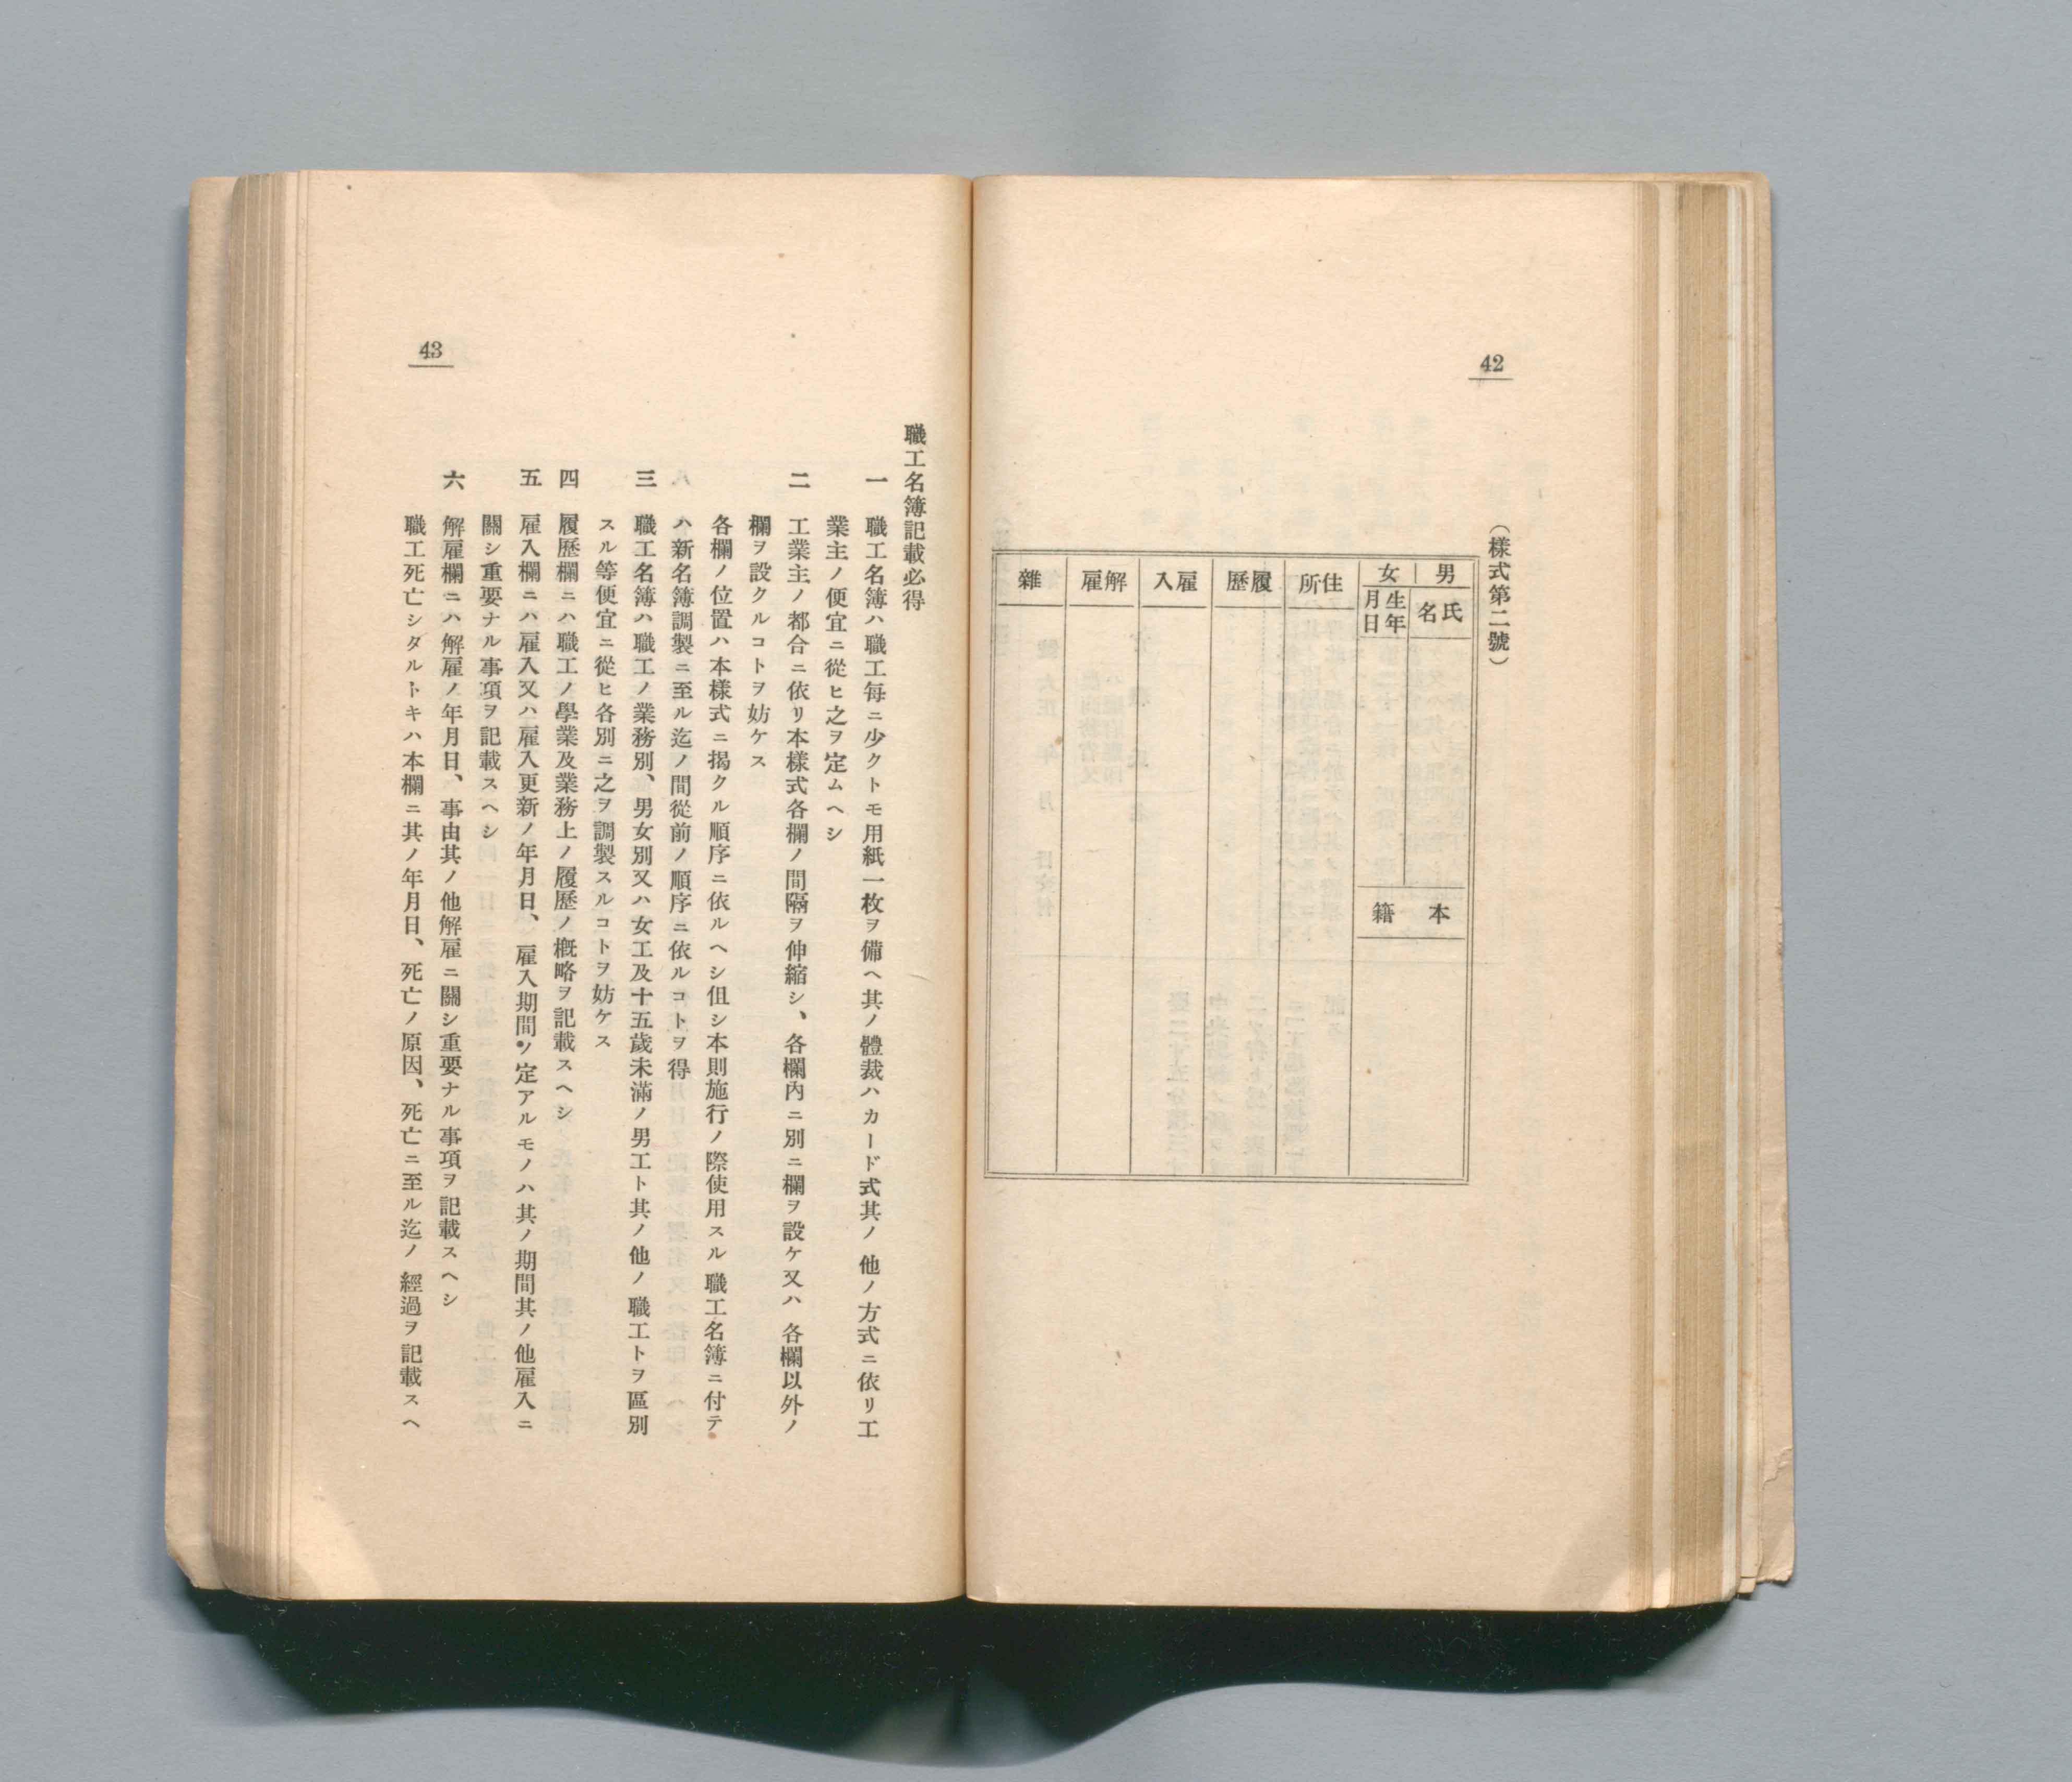 42
(樣式第二號)
男|女
氏名
生年月日
本籍
住所
履歷
雇入
解雇
雜
43
職工名簿記載必得
一 職工名簿ハ職工每ニ少クトモ用紙一枚ヲ備ヘ其ノ體裁ハカード式其ノ他ノ方式ニ依リ工
業主ノ便宜ニ從ヒ之ヲ定ムヘシ
二 工業主ノ都合ニ依リ本樣式各欄ノ間隔ヲ伸縮シ、各欄內ニ別ニ欄ヲ設ケ又ハ各欄以外ノ
欄ヲ設クルコトヲ妨ケス
各欄ノ位置ハ本樣式ニ揭クル順序ニ依ルヘシ伹シ本則施行ノ際使用スル職工名簿ニ付テ
ハ新名簿調製ニ至ル迄ノ間從前ノ順序ニ依ルコトヲ得
三 職工名簿ハ職工ノ業務別、男女別又ハ女工及十五歲未滿ノ男工ト其ノ他ノ職工トヲ區別
スル等便宜ニ從ヒ各別ニ之ヲ調製スルコトヲ妨ケス
四 履歷欄ニハ職工ノ學業及業務上ノ履歷ノ槪略ヲ記載スヘシ
五 雇入欄ニハ雇入又ハ雇入更新ノ年月日、雇入期間ノ定アルモノハ其ノ期間其ノ他雇入ニ
關シ重要ナル事項ヲ記載スヘシ
六 解雇欄ニハ解雇ノ年月日、事由其ノ他解雇ニ關シ重要ナル事項ヲ記載スヘシ
職工死亡シタルトキハ本欄ニ其ノ年月日、死亡ノ原因、死亡ニ至ル迄ノ經過ヲ記載スヘ